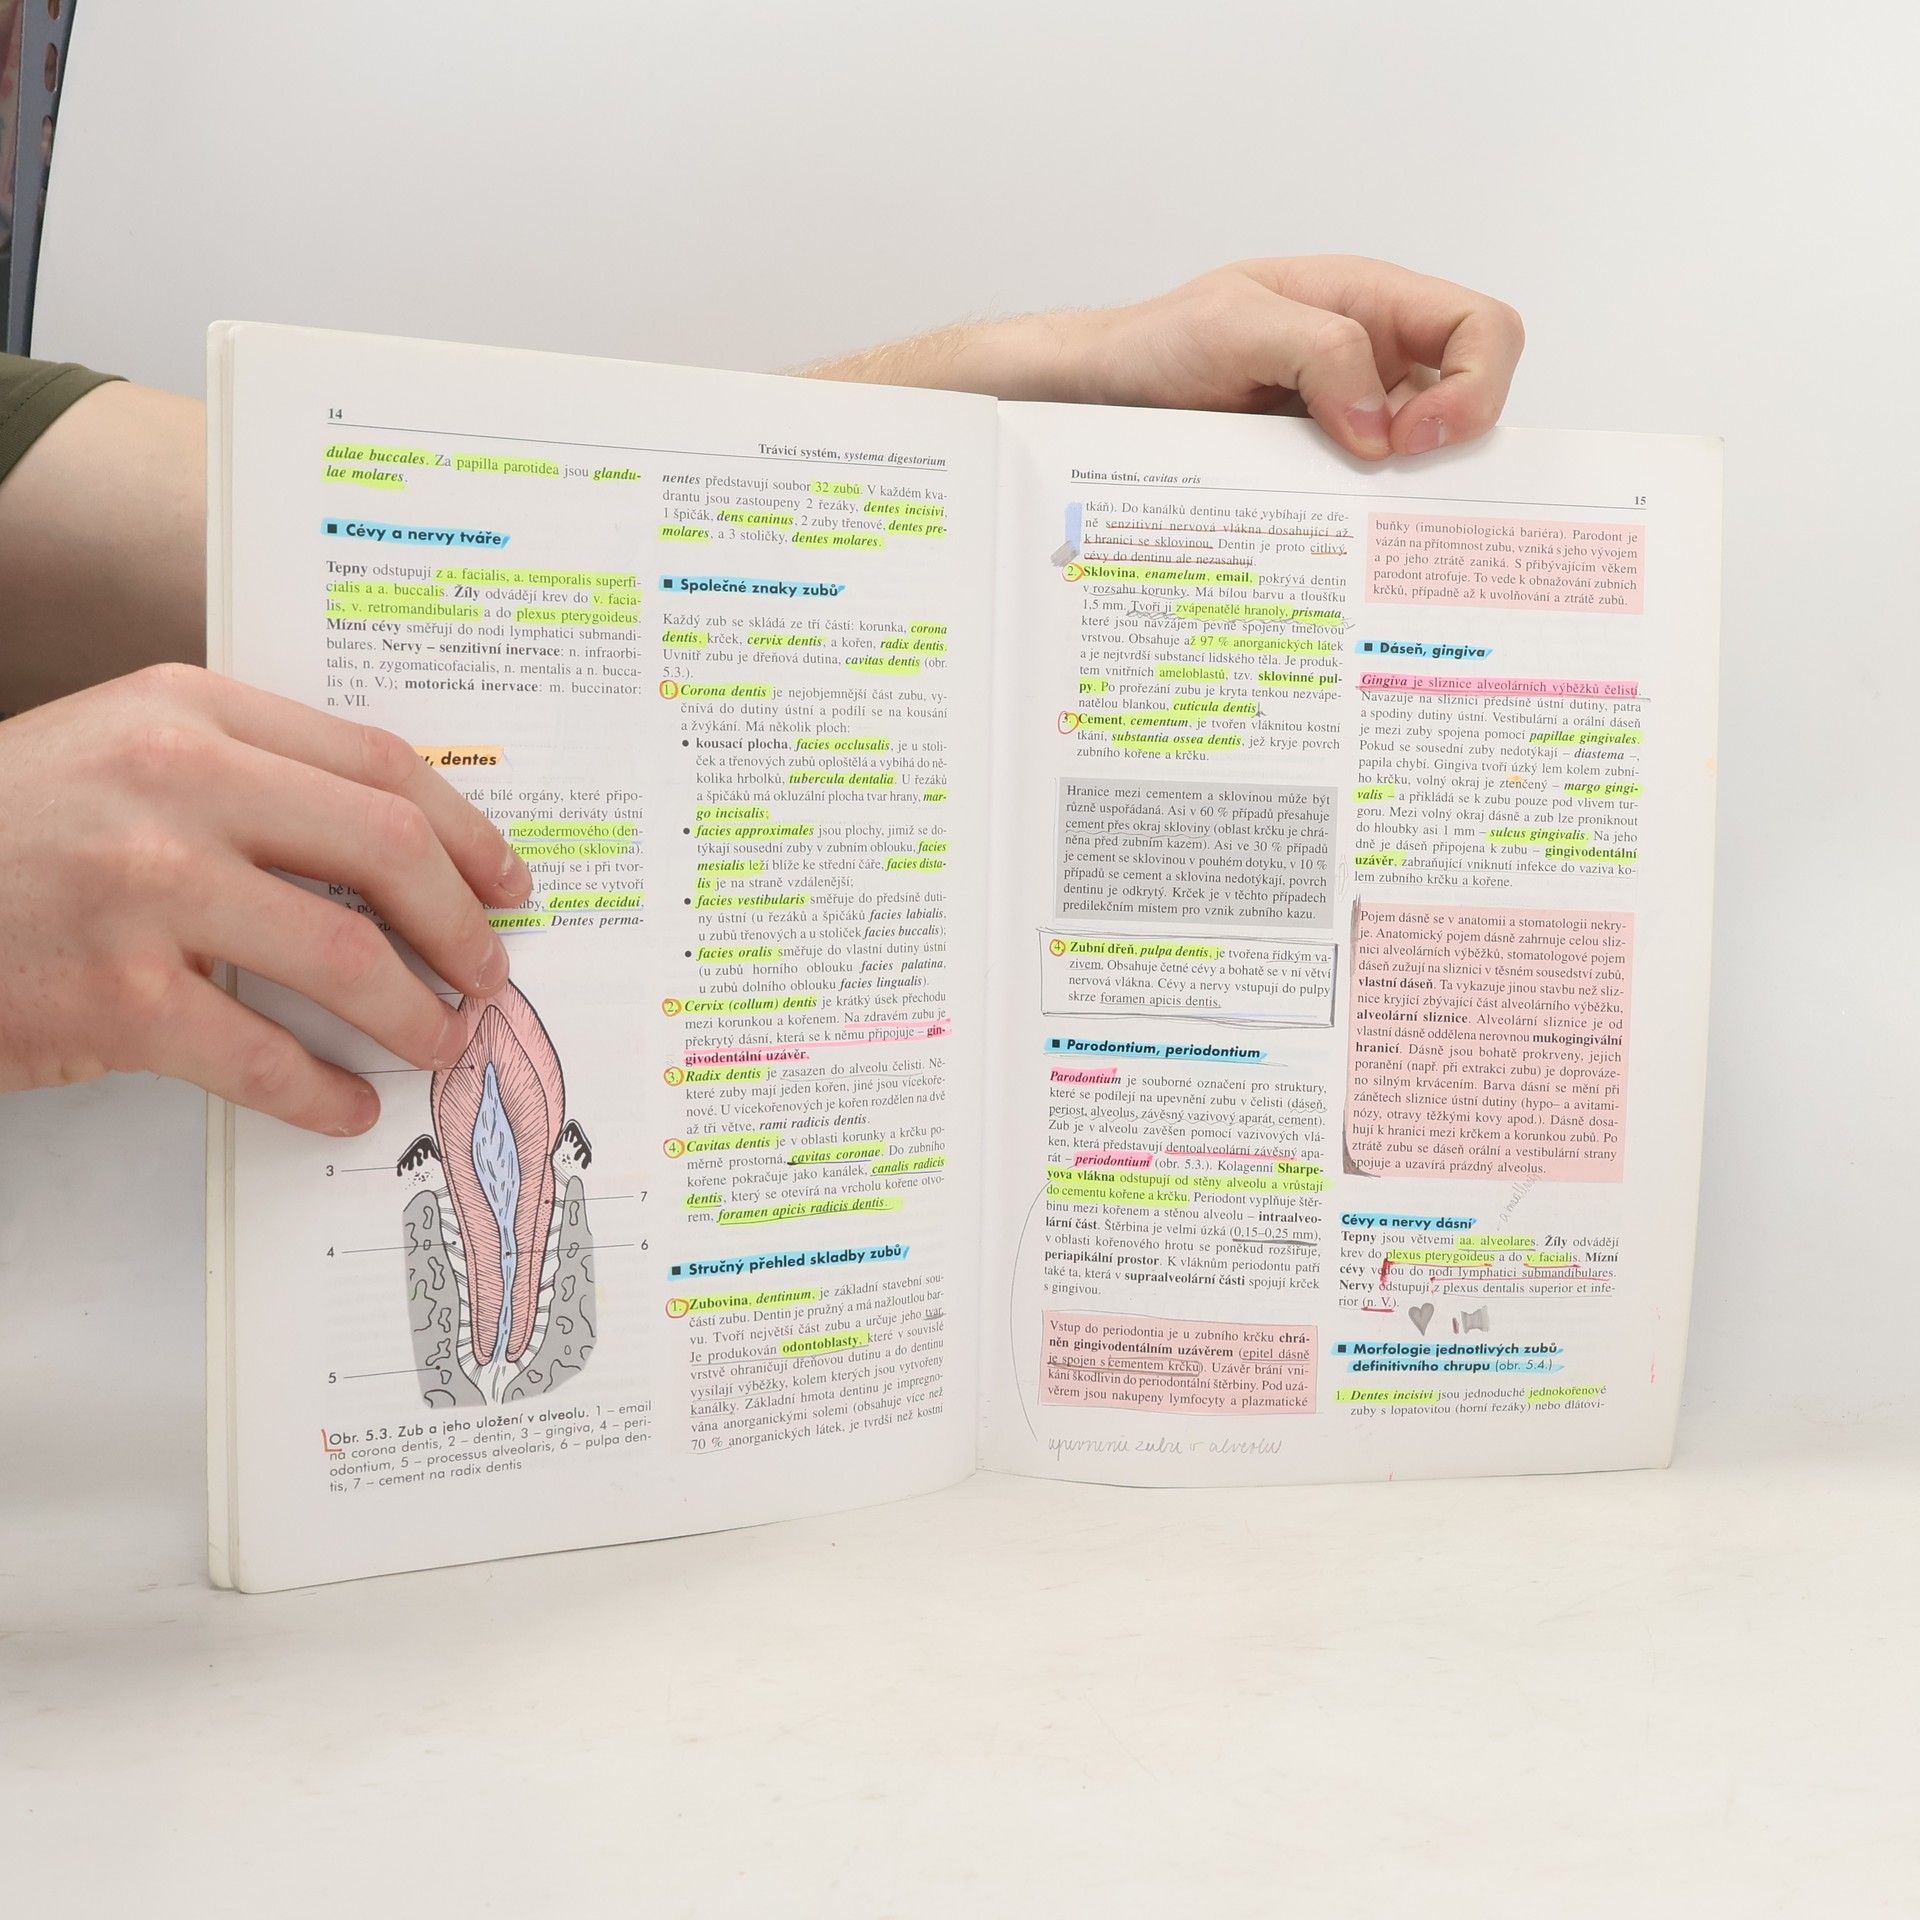 14
Trávicí systém, systema digestorium
dulae buccales. Za papilla parotidea jsou glandu-
lae molares.
■ Cévy a nervy tváře
Tepny odstupují z a. facialis, a. temporalis superfi-
cialis a a. buccalis. Žíly odvádějí krev do v. facia-
lis, v. retromandibularis a do plexus pterygoideus.
Mízní cévy směřují do nodi lymphatici submandi-
bulares. Nervy – senzitivní inervace: n. infraorbi-
talis, n. zygomaticofacialis, n. mentalis a n. bucca-
lis (n. V.); motorická inervace: m. buccinator:
n. VII.
, dentes
rdé bílé orgány, které připo-
lizovanými deriváty ústní
mezodermového (den-
dermového (sklovina).
latňují se i při tvor-
jedince se vytvoří
uby, dentes decidui,
manentes. Dentes perma-
3
4
5
7
6
Obr. 5.3. Zub a jeho uložení v alveolu. 1 – email
na corona dentis, 2 – dentin, 3 – gingiva, 4 – peri-
odontium, 5 – processus alveolaris, 6 – pulpa den-
tis, 7 – cement na radix dentis
nentes představují soubor 32 zubů. V každém kva-
drantu jsou zastoupeny 2 řezáky, dentes incisivi,
1 špičák, dens caninus, 2 zuby třenové, dentes pre-
molares, a 3 stoličky, dentes molares.
■ Společné znaky zubů
Každý zub se skládá ze tří částí: korunka, corona
dentis, krček, cervix dentis, a kořen, radix dentis.
Uvnitř zubu je dřeňová dutina, cavitas dentis (obr.
5.3.).
1. Corona dentis je nejobjemnější část zubu, vy-
čnívá do dutiny ústní a podílí se na kousání
a žvýkání. Má několik ploch:
● kousací plocha, facies occlusalis, je u stoli-
ček a třenových zubů oploštělá a vybíhá do ně-
kolika hrbolků, tubercula dentalia. U řezáků
a špičáků má okluzální plocha tvar hrany, mar-
go incisalis;
● facies approximales jsou plochy, jimiž se do-
týkají sousední zuby v zubním oblouku, facies
mesialis leží blíže ke střední čáře, facies dista-
lis je na straně vzdálenější;
● facies vestibularis směřuje do předsíně duti-
ny ústní (u řezáků a špičáků facies labialis,
u zubů třenových a u stoliček facies buccalis);
● facies oralis směřuje do vlastní dutiny ústní
(u zubů horního oblouku facies palatina,
u zubů dolního oblouku facies lingualis).
2. Cervix (collum) dentis je krátký úsek přechodu
mezi korunkou a kořenem. Na zdravém zubu je
překrytý dásní, která se k němu připojuje – gin-
givodentální uzávěr.
3. Radix dentis je zasazen do alveolu čelisti. Ně-
které zuby mají jeden kořen, jiné jsou vícekoře-
nové. U vícekořenových je kořen rozdělen na dvě
až tři větve, rami radicis dentis.
4. Cavitas dentis je v oblasti korunky a krčku po-
měrně prostorná, cavitas coronae. Do zubního
kořene pokračuje jako kanálek, canalis radicis
dentis, který se otevírá na vrcholu kořene otvo-
rem, foramen apicis radicis dentis.
■ Stručný přehled skladby zubů
1. Zubovina, dentinum, je základní stavební sou-
částí zubu. Dentin je pružný a má nažloutlou bar-
vu. Tvoří největší část zubu a určuje jeho tvar.
Je produkován odontoblasty, které v souvislé
vrstvě ohraničují dřeňovou dutinu a do dentinu
vysílají výběžky, kolem kterých jsou vytvořeny
kanálky. Základní hmota dentinu je impregno-
vána anorganickými solemi (obsahuje více než
70 % anorganických látek, je tvrdší než kostní
Dutina ústní, cavitas oris
15
tkáň). Do kanálků dentinu také vybíhají ze dře-
ně senzitivní nervová vlákna dosahující až
k hranici se sklovinou. Dentin je proto citlivý,
cévy do dentinu ale nezasahují.
2. Sklovina, enamelum, email, pokrývá dentin
v rozsahu korunky. Má bílou barvu a tloušťku
1,5 mm. Tvoří ji zvápenatělé hranoly, prismata,
které jsou navzájem pevně spojeny tmelovou
vrstvou. Obsahuje až 97 % anorganických látek
a je nejtvrdší substancí lidského těla. Je produk-
tem vnitřních ameloblastů, tzv. sklovinné pul-
py. Po prořezání zubu je kryta tenkou nezvápe-
natělou blankou, cuticula dentis.
3. Cement, cementum, je tvořen vláknitou kostní
tkání, substantia ossea dentis, jež kryje povrch
zubního kořene a krčku.
Hranice mezi cementem a sklovinou může být
různě uspořádaná. Asi v 60 % případů přesahuje
cement přes okraj skloviny (oblast krčku je chrá-
něna před zubním kazem). Asi ve 30 % případů
je cement se sklovinou v pouhém dotyku, v 10 %
případů se cement a sklovina nedotýkají, povrch
dentinu je odkrytý. Krček je v těchto případech
predilekčním místem pro vznik zubního kazu.
4. Zubní dřeň, pulpa dentis, je tvořena řídkým va-
zivem. Obsahuje četné cévy a bohatě se v ní větví
nervová vlákna. Cévy a nervy vstupují do pulpy
skrze foramen apicis dentis.
■ Parodontium, periodontium
Parodontium je souborné označení pro struktury,
které se podílejí na upevnění zubu v čelisti (dáseň,
periost, alveolus, závěsný vazivový aparát, cement).
Zub je v alveolu zavěšen pomocí vazivových vlá-
ken, která představují dentoalveolární závěsný apa-
rát – periodontium (obr. 5.3.). Kolagenní Sharpe-
yova vlákna odstupují od stěny alveolu a vrůstají
do cementu kořene a krčku. Periodont vyplňuje štěr-
binu mezi kořenem a stěnou alveolu – intraalveo-
lární část. Štěrbina je velmi úzká (0,15–0,25 mm),
v oblasti kořenového hrotu se poněkud rozšiřuje,
periapikální prostor. K vláknům periodontu patří
také ta, která v supraalveolární části spojují krček
s gingivou.
Vstup do periodontia je u zubního krčku chrá-
něn gingivodentálním uzávěrem (epitel dásně
je spojen s cementem krčku). Uzávěr brání vni-
kání škodlivin do periodontální štěrbiny. Pod uzá-
věrem jsou nakupeny lymfocyty a plazmatické
upevnenie zubu v alveolu
buňky (imunobiologická bariéra). Parodont je
vázán na přítomnost zubu, vzniká s jeho vývojem
a po jeho ztrátě zaniká. S přibývajícím věkem
parodont atrofuje. To vede k obnažování zubních
krčků, případně až k uvolňování a ztrátě zubů.
■ Dáseň, gingiva
Gingiva je sliznice alveolárních výběžků čelistí.
Navazuje na sliznici předsíně ústní dutiny, patra
a spodiny dutiny ústní. Vestibulární a orální dáseň
je mezi zuby spojena pomocí papillae gingivales.
Pokud se sousední zuby nedotýkají – diastema –,
papila chybí. Gingiva tvoří úzký lem kolem zubní-
ho krčku, volný okraj je ztenčený – margo gingi-
valis – a přikládá se k zubu pouze pod vlivem tur-
goru. Mezi volný okraj dásně a zub lze proniknout
do hloubky asi 1 mm – sulcus gingivalis. Na jeho
dně je dáseň připojena k zubu – gingivodentální
uzávěr, zabraňující vniknutí infekce do vaziva ko-
lem zubního krčku a kořene.
Pojem dásně se v anatomii a stomatologii nekry-
je. Anatomický pojem dásně zahrnuje celou sliz-
nici alveolárních výběžků, stomatologové pojem
dáseň zužují na sliznici v těsném sousedství zubů,
vlastní dáseň. Ta vykazuje jinou stavbu než sliz-
nice kryjící zbývající část alveolárního výběžku,
alveolární sliznice. Alveolární sliznice je od
vlastní dásně oddělena nerovnou mukogingivální
hranicí. Dásně jsou bohatě prokrveny, jejich
poranění (např. při extrakci zubu) je doprováze-
no silným krvácením. Barva dásní se mění při
zánětech sliznice ústní dutiny (hypo– a avitami-
nózy, otravy těžkými kovy apod.). Dásně dosa-
hují k hranici mezi krčkem a korunkou zubů. Po
ztrátě zubu se dáseň orální a vestibulární strany
spojuje a uzavírá prázdný alveolus.
Cévy a nervy dásní
Tepny jsou větvemi aa. alveolares. Žíly odvádějí
krev do plexus pterygoideus a do v. facialis. Mízní
cévy vedou do nodi lymphatici submandibulares.
Nervy odstupují z plexus dentalis superior et infe-
rior (n. V.).
■ Morfologie jednotlivých zubů
definitivního chrupu (obr. 5.4.)
1. Dentes incisivi jsou jednoduché jednokořenové
zuby s lopatovitou (horní řezáky) nebo dlátovi-